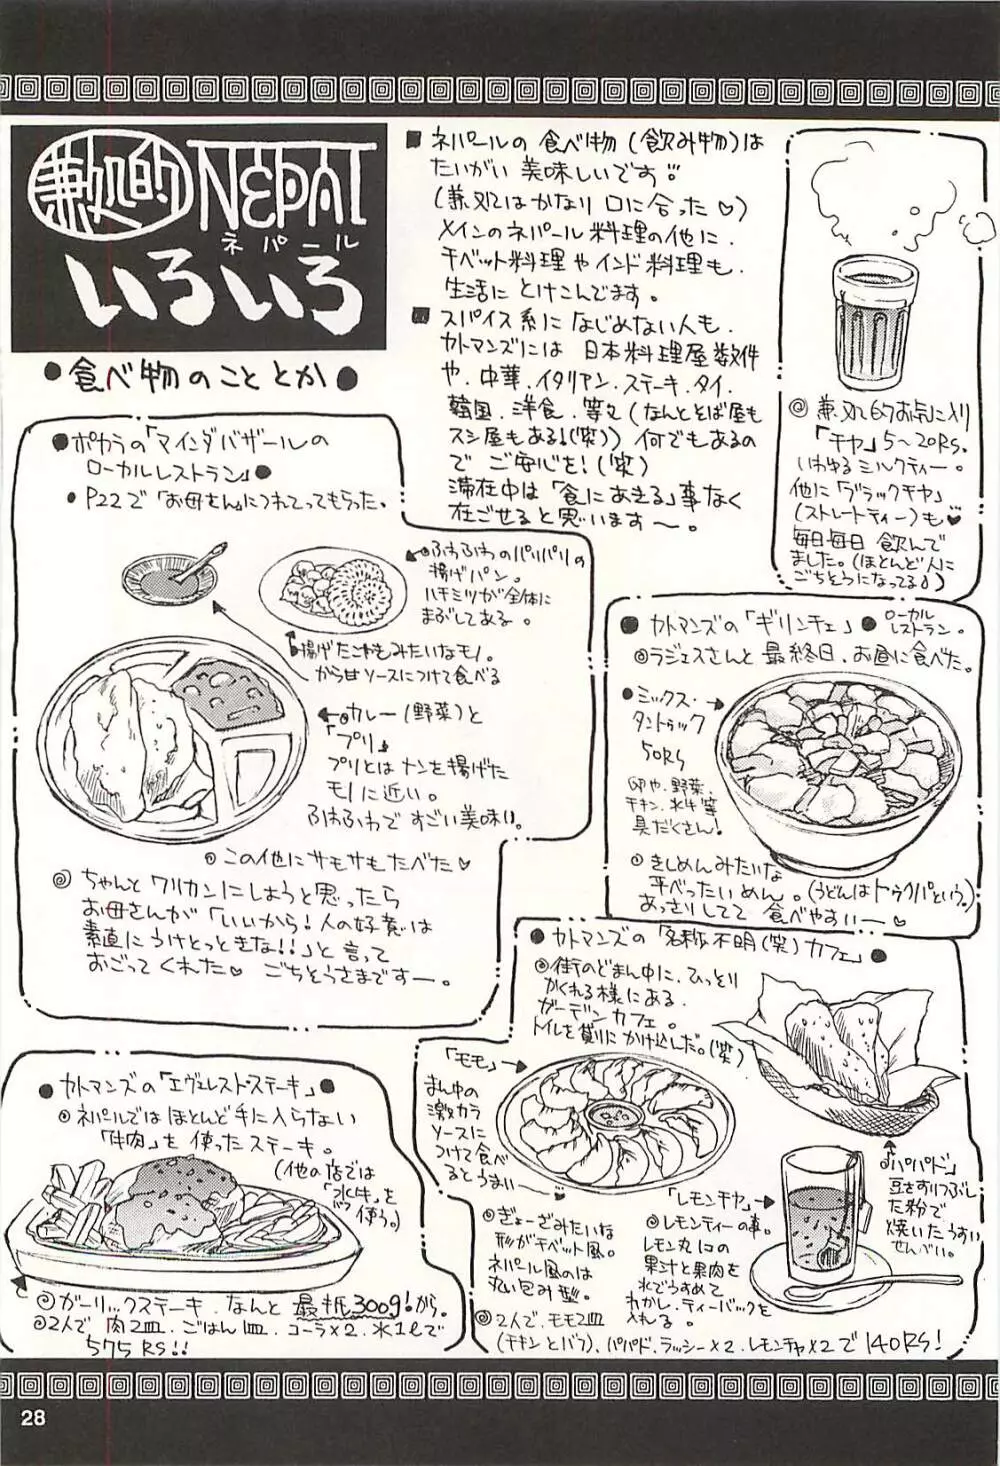 兼処的 NEPAL
ネパール
いろいろ
●食べ物のこととか●
■ネパールの食べ物(飲み物)は
たいがい美味しいです
(兼処はかなり口に合った♡)
メインのネパール料理の他に、
チベット料理やインド料理も、
生活にとけこんでます。
■スパイス系になじめない人も、
カトマンズには日本料理屋数件
や、中華、イタリアン、ステーキ、タイ、
韓国、洋食、等々(なんとそば屋も
スシ屋もある!(笑))何でもあるの
でご安心を!(笑)
滞在中は「食にあきる」事なく
在ごせると思います〜。
◎兼処的お気に入り
「チヤ」5〜20RS.
いわゆるミルクティー。
他に「ブラックチヤ」
(ストレートティー)も♥
毎日毎日飲んで
ました。(ほとんど人に
ごちそうになってる)
●ポカラの「マインダバザールの
ローカルレストラン」●
•P22で「お母さん」につれてってもらった。
ふわふわのパリパリの
揚げパン。
ハチミツが全体に
まぶしてある。
揚げたこやきみたいなモノ。
から甘ソースにつけて食べる
カレー(野菜)と
「プリ」
プリとはナンを揚げた
モノに近い。
ふわふわですごい美味い。
この他にサモサもたべた♥
◎ちゃんとワリカンにしようと思ったら
お母さんが「いいから!人の好意は
素直にうけとっときな!!」と言って
おごってくれた♥ ごちそうさまです〜。
●カトマンズの「ギリンチェ」● ローカル
レストラン。
◎ラジェスさんと最終日、お昼に食べた。
●ミックス・
タントゥック
50RS
卵や、野菜、
チキン、水牛等
具だくさん!
きしめんみたいな
平べったいめん。(うどんはトゥクパという。)
あっさりしてて食べやすい〜♡
●カトマンズの「名称不明(笑)カフェ」●
◎街のどまん中に、ひっそり
かくれる様にある
ガーデンカフェ。
トイレを借りにかけ込んだ。(笑)
「モモ」
まん中の
激カラ
ソースに
つけて食べ
るとうまい〜
◎ぎょーざみたいな
形がチベット風。
ネパール風のは
丸い包み型。
「パパド」
豆をすりつぶし
た粉で
焼いたうすい
せんべい。
「レモンチヤ」
◎レモンティーの事。
レモン丸1コの
果汁と果肉を
水でうすめて
わかし、ティーバックを
入れる。
◎2人で、モモ2皿
(チキンとバフ)、パパド、ラッシー×2、レモンチャ×2で140RS!
●カトマンズの「エヴェレスト・ステーキ」●
◎ネパールではほとんど手に入らない
「牛肉」を使ったステーキ。
(他の店では
「水牛」を
使う。)
◎ガーリックステーキ、なんと最低300g!から。
◎2人で肉2皿、ごはん1皿、コーラ×2、水1ℓで
575RS!!
28